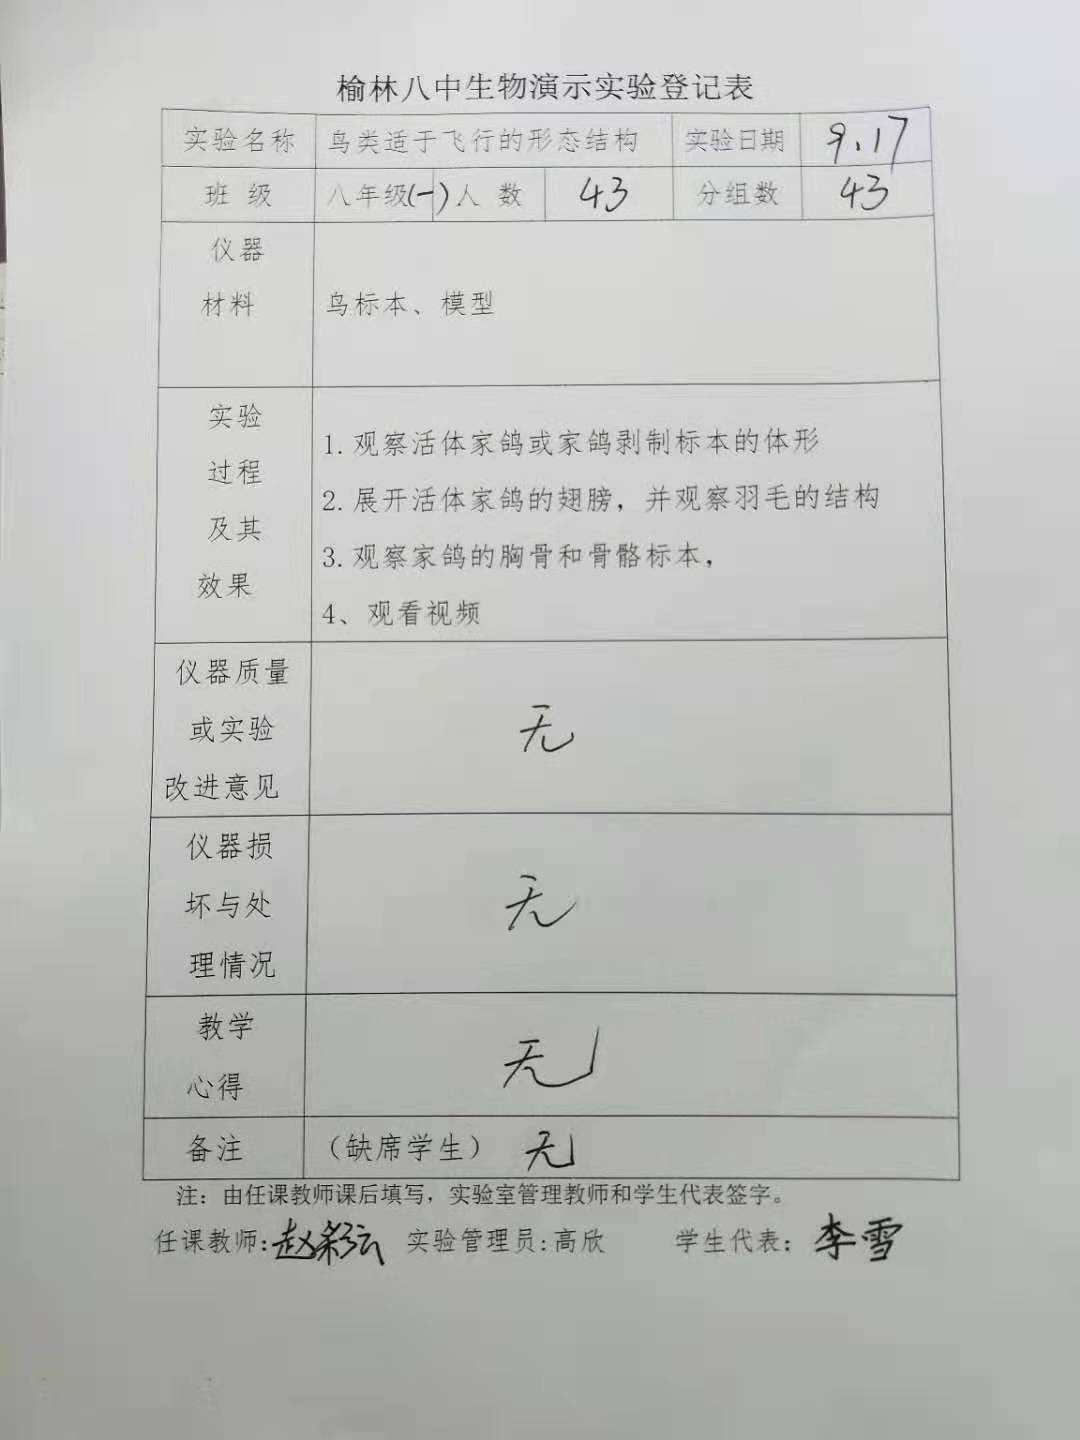 榆林八中生物演示实验登记表
实验名称 鸟类适于飞行的形态结构 实验日期 9.17
班 级 八年级(一) 人 数 43 分组数 43
仪器
材料
鸟标本、模型
实验
过程
及其
效果
1.观察活体家鸽或家鸽剥制标本的体形
2.展开活体家鸽的翅膀，并观察羽毛的结构
3.观察家鸽的胸骨和骨骼标本，
4、观看视频
仪器质量
或实验
改进意见
无
仪器损
坏与处
理情况
无
教学
心得
无
备注 （缺席学生） 无
注：由任课教师课后填写，实验室管理教师和学生代表签字。
任课教师：赵彩云 实验管理员：高欣 学生代表：李雪